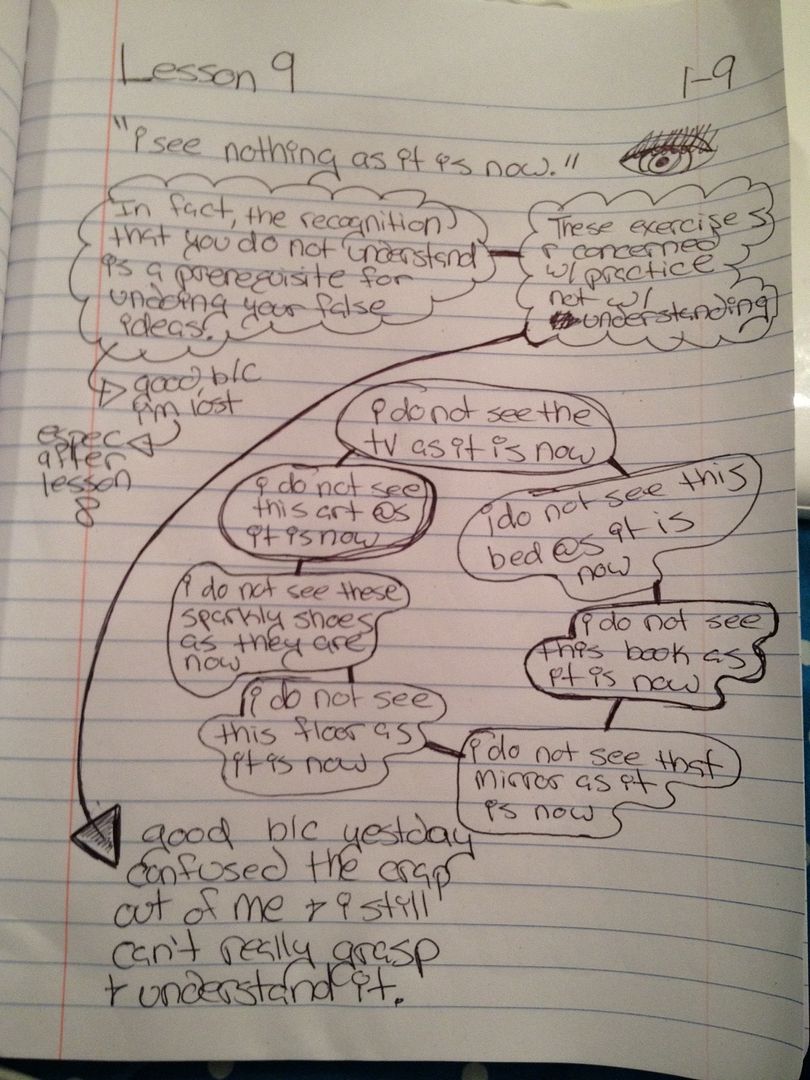 Lesson 9
1-9
"i see nothing as it is now."
In fact, the recognition
that you do not understand
is a prerequisite for
undoing your false
ideas.
These exercises
r concerned
w/ practice
not w/
understanding
good, b/c
i'm lost
espec
after
lesson
8
i do not see the
tv as it is now
i do not see
this art @s
it is now
i do not see this
bed @s it is
now
i do not see these
sparkly shoes
as they are
now
i do not see
this book as
it is now
i do not see
this floor as
it is now
i do not see that
mirror as it
is now
good b/c yestday
confused the crap
out of me + i still
can't really grasp
+ understand it.